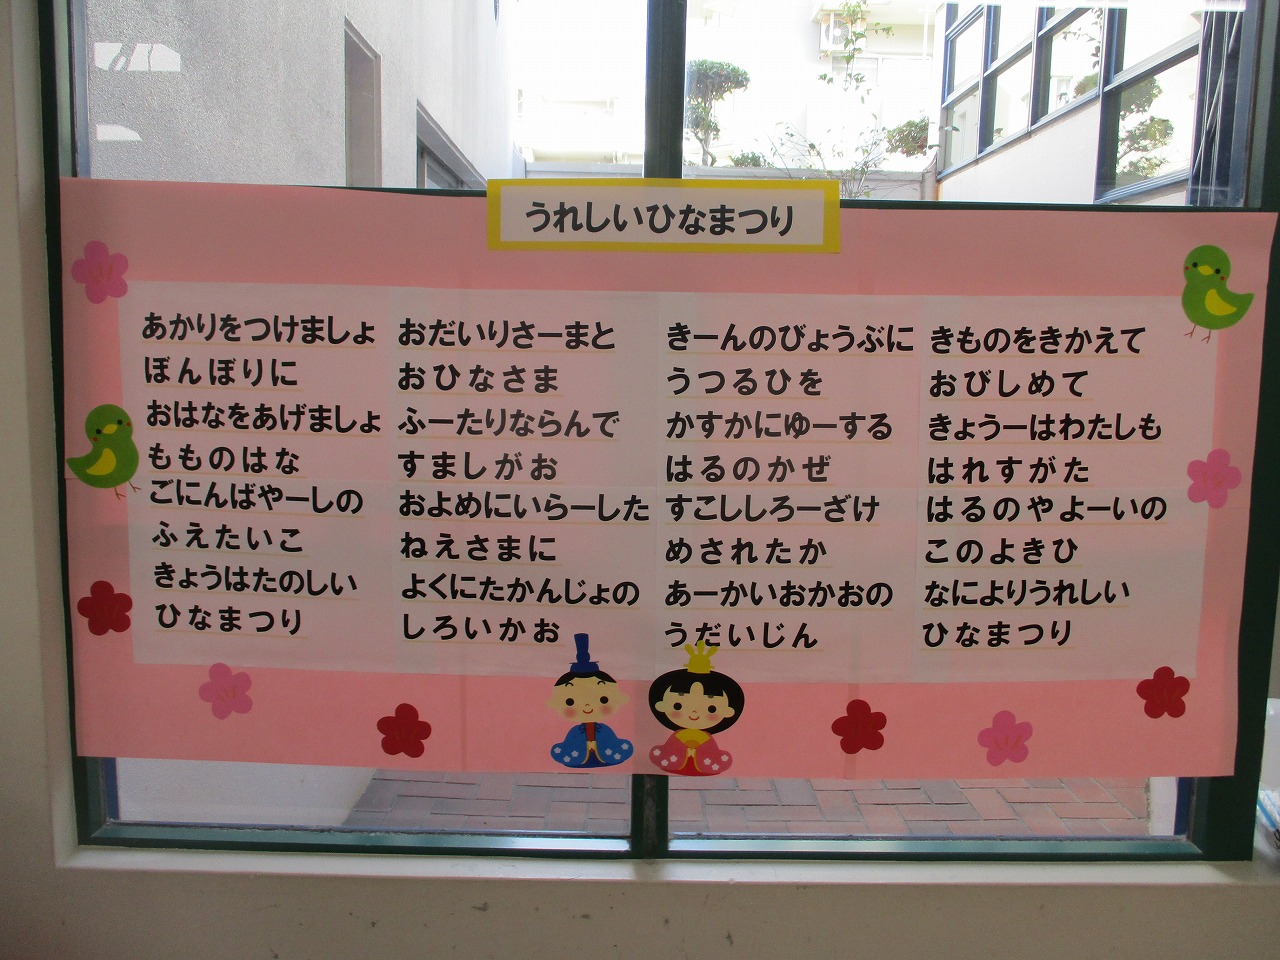 うれしいひなまつり
あかりをつけましょ
ぼんぼりに
おはなをあげましょ
もものはな
ごにんばやーしの
ふえたいこ
きょうはたのしい
ひなまつり
おだいりさーまと
おひなさま
ふーたりならんで
すましがお
およめにいらーした
ねえさまに
よくにたかんじょの
しろいかお
きーんのびょうぶに
うつるひを
かすかにゆーする
はるのかぜ
すこししろーざけ
めされたか
あーかいおかおの
うだいじん
きものをきかえて
おびしめて
きょうーはわたしも
はれすがた
はるのやよーいの
このよきひ
なによりうれしい
ひなまつり